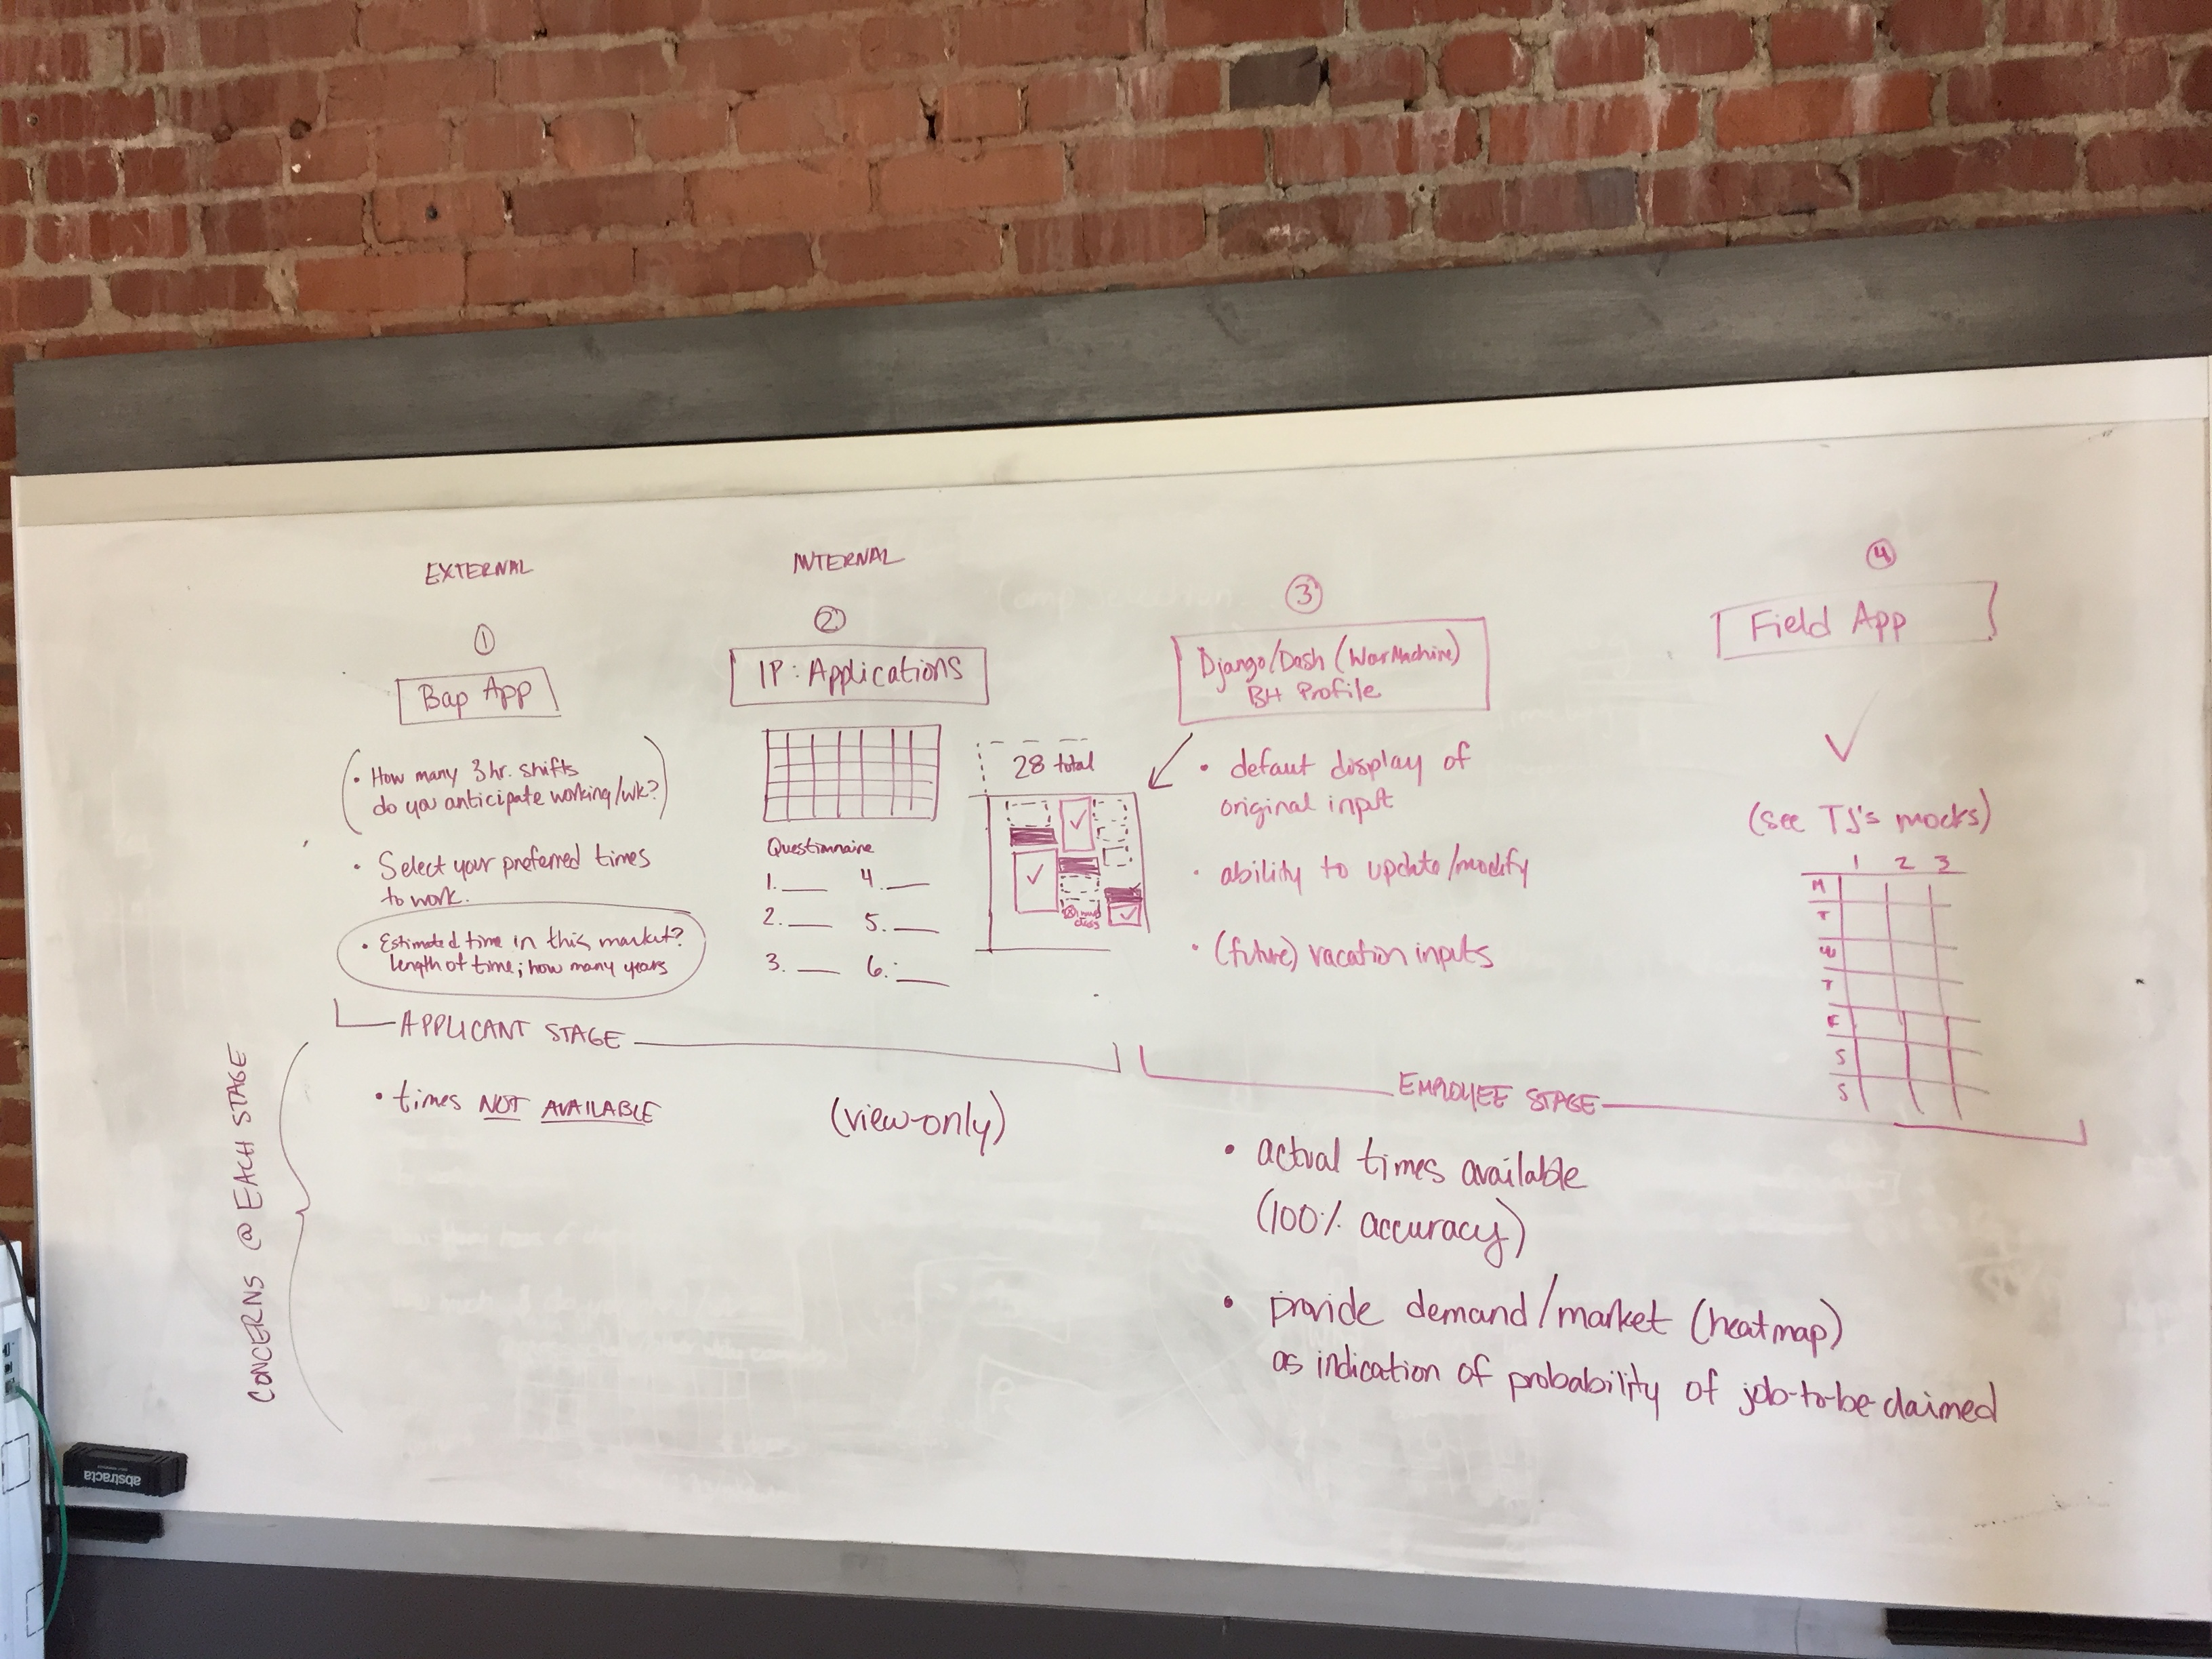 EXTERNAL
INTERNAL
1
Bap App
• How many 3hr. shifts
do you anticipate working/wk?
• Select your preferred times
to work.
• Estimated time in this market?
length of time; how many years
2
IP: Applications
28 total
Questionnaire
1. __ 4. __
2. __ 5. __
3. __ 6. __
3
Django/Dash (WarMachine)
BH Profile
• defaut display of
original input
• ability to update/modify
• (future) vacation inputs
4
Field App
(see TJ's mocks)
1 2 3
M
T
W
T
F
S
S
APPLICANT STAGE
EMPLOYEE STAGE
CONCERNS @ EACH STAGE
• times NOT AVAILABLE
(view-only)
• actual times available
(100% accuracy)
• provide demand/market (heatmap)
as indication of probability of job-to-be-claimed
abstracta